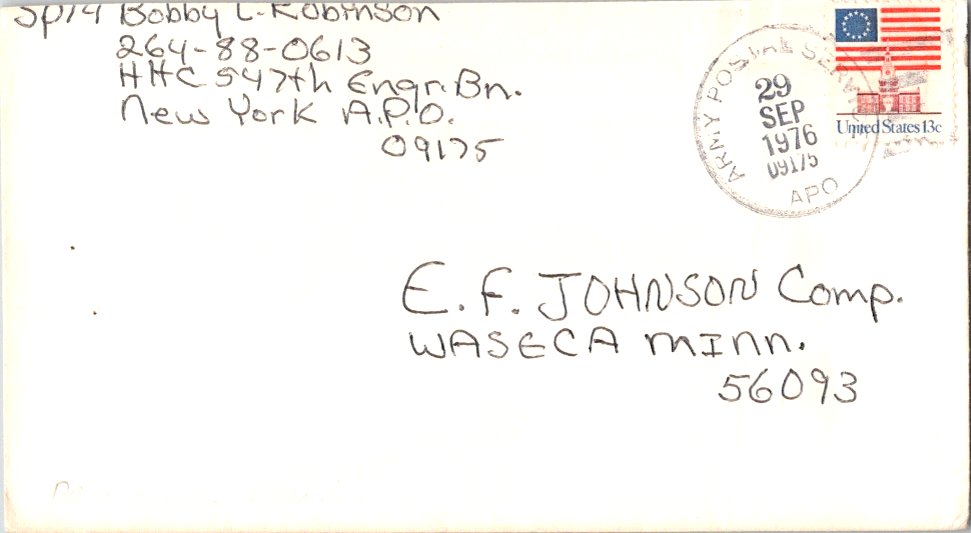 Sp/4 Bobby L. Robinson
264-88-0613
HHC 547th Engr. Bn.
New York A.P.O.
09175
ARMY POSTAL SERVICE
29
SEP
1976
09175
APO
United States 13c
E.F. JOHNSON Comp.
WASECA MINN.
56093